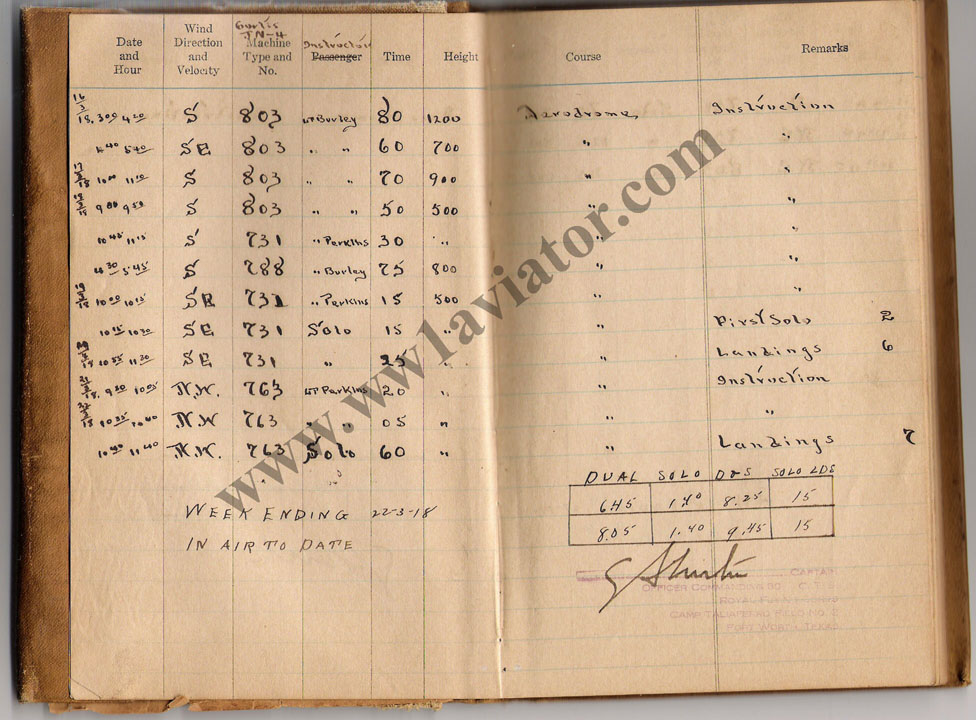 Date and Hour Wind Direction and Velocity Curtis JN-4 Machine Type and No. Instructor Passenger Time Height Course Remarks
16/3/18. 3 00 4 20 S 803 LT Burley 80 1200 Aerodrome Instruction
4 40 5 40 SE 803 " " 60 700 " "
17/3/18 10 00 11 10 S 803 " " 70 900 " "
9 00 9 50 S 803 " " 50 500 " "
10 45 11 15 S 731 " Perkins 30 " " "
4 30 5 45 S 788 " Burley 75 800 " "
10 00 10 15 SE 731 " Perkins 15 500 " "
10 15 10 30 SE 731 Solo 15 " " First Solo 2
10 55 11 20 SE 731 " 25 " " Landings 6
21/3/18. 9 20 N.W. 763 LT Perkins 20 " " Instruction
22/3/18 10 35 10 40 N.W 763 " " 05 " " "
10 40 11 40 N.W. 763 Solo 60 " " Landings 7
DUAL SOLO SOLO LDS
6.45 8.25 15
8.05 1.40 9.45 15
WEEK ENDING 22-3-18
IN AIR TO DATE
CAPTAIN
OFFICER COMMANDING
ROYAL FLYING CORPS
CAMP TALIAFERRO FIELD NO. 2
FORT WORTH, TEXAS.
www.ww1aviator.com